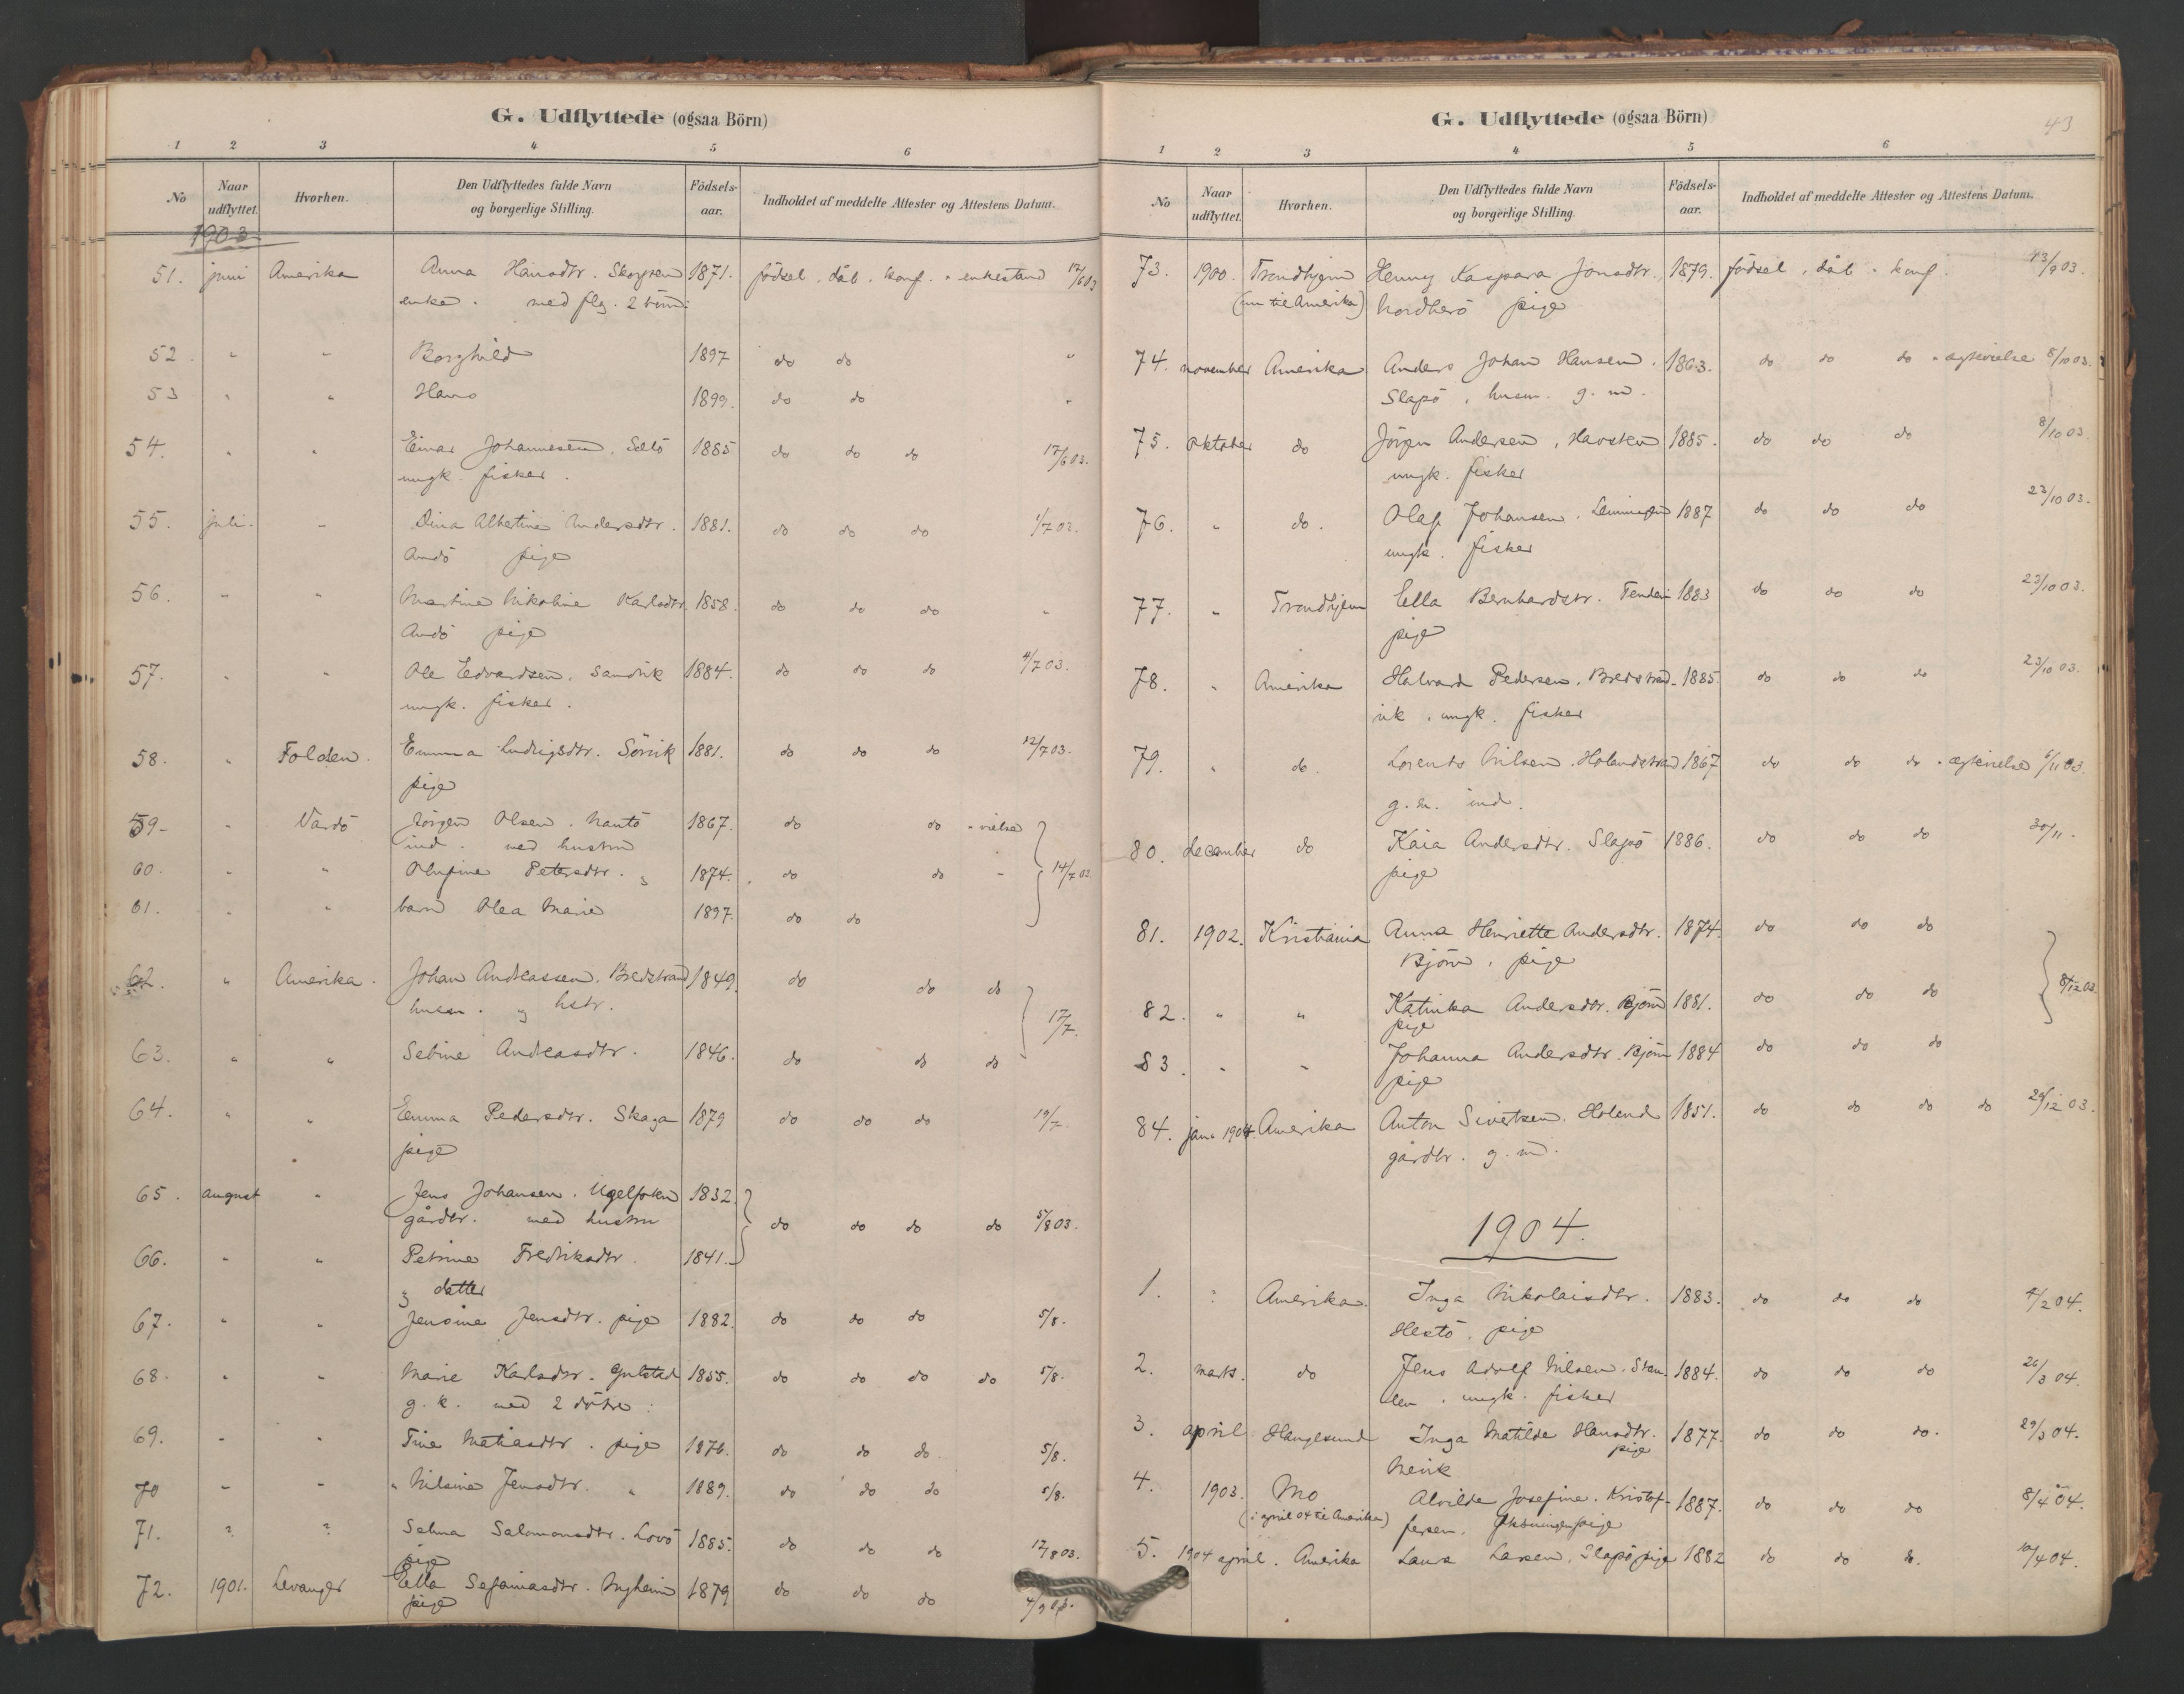 G. Udflyttede (ogsaa Börn)
1 2 3 4 5 6
No Naar udflyttet. Hvorhen. Den Udflyttedes fulde Navn og borgerlige Stilling. Födsels-aar. Indholdet af meddelte Attester og Attestens Datum.
1903
51. juni Amerika Anna Hansdtr. 1871. födsel, dåb, konf. " enkestand 17/6 03
enke. med flg. 2 börn:
52. " " Borghild 1897 do do "
53 " " Hans 1899. do do "
54. " " Einar Johannesen. 1885 do do do 17/6 03.
ungk. fisker.
55. juli. " Dina Albertine Andersdtr. 1881. do do do 1/7 03.
Andö pige
56. " " Martine Nikoline Karlsdtr. 1858. do do do "
Andö pige
57. " " Ole Edvardsen. Sandvik 1884. do do do 4/7 03.
ungk. fisker.
58. " Folden. Emma Ludvigsdtr. Sörvik 1881. do do do 12/7 03.
pige
59. " Vardö Jörgen Olsen. 1867. do do " vielse
ind. med hustru
60. " " Olufine Petersdtr. 1874. do do " 14/7 03
61. " " barn Olea Marie 1897. do do
62. " Amerika. Johan Andreassen. Bredstrand 1849. do do do
husm. og hstr. 17/7.
63. " " Sebine Andreasdtr. 1846. do do do
64. " " Emma Pedersdtr. Skaga 1879 do do do 19/7.
pige
65. august " Jens Johansen. 1832.
gårdbr. med hustru do do do do 5/8 03.
66. " " Petrine Fredriksdtr. 1841.
og datter
67. " " Jensine Jensdtr. pige 1882. do do do 5/8.
68. " " Marie Karlsdtr. 1855. do do do do 5/8.
g. k. med 2 døtre:
69. " " Tine Matiasdtr. pige 1876. do do do 5/8.
70 " " " Nilsine Jensdtr. " 1889. do do do 5/8.
71. ? ? Selma Salomonsdtr. Lovö 1885. do do do 17/8 03.
pige
72. 1901. Levanger Ella 1879 do do do
pige
G. Udflyttede (ogsaa Börn)
43
1 2 3 4 5 6
No Naar udflyttet. Hvorhen. Den Udflyttedes fulde Navn og borgerlige Stilling. Födsels-aar. Indholdet af meddelte Attester og Attestens Datum.
73. 1900. Trondhjem Henny Kaspara Jonsdtr. 1879. födsel, dåb " konf. 23/9 03.
(nu til Amerika) Nordherö pige
74. november Amerika Anders Johan Hansen. 1863. do do do " ægtevielse 8/10 03.
Slapö, husm. g. m.
75. oktober do Jörgen Andersen, Havsten 1885. do do do 8/10 03.
ungk. fisker
76. " do. Olaf Johansen. 1887 do do do 23/10 03.
ungk. fisker
77. " Trondhjem Ella Bernhardsdtr. 1883 do do do 23/10 03.
pige
78. " Amerika Halvard Pedersen. Bredstrand- 1885. do do do 23/10 03.
vik, ungk. fisker
79. " do. Lorents Nilsen. Holandstrand 1867 do do do " ægtevielse 6/11 03.
g. m. ind.
80. december do Kaia Andersdtr. Slapö 1886. do do do 30/11.
pige
81. 1902. Kristiania Anna Henriette Andersdtr. 1874. do do do
Björn, pige
82. " " Katinka Andersdtr. Björn 1881. do do do 8/12 03.
pige
83. " " Johanna Andersdtr. Björn 1884 do do do
pige
84. jan. 1904. Amerika Anton Sivertsen. Holand 1851. do do do do 29/12 03.
gårdbr. g. m.
1904.
1. ? Amerika. Inga Nikolaisdtr. 1883. do do do 4/2 04.
Hestö, pige
2. marts. do Jens Adolf Nilsen. 1884. do do do 26/3 04.
ungk. fisker
3. april. Haugesund Inga Matilde Hansdtr. 1877. do do do. 29/3 04.
pige
4. 1903. Mo Alvilde Josefine. Kristof- 1887. do do do 8/4 04.
(i april 04 til Amerika) fersen.
5. 1904 april. Amerika Laura Larsen, Slapö pige 1882 do do do. 10/4 04.